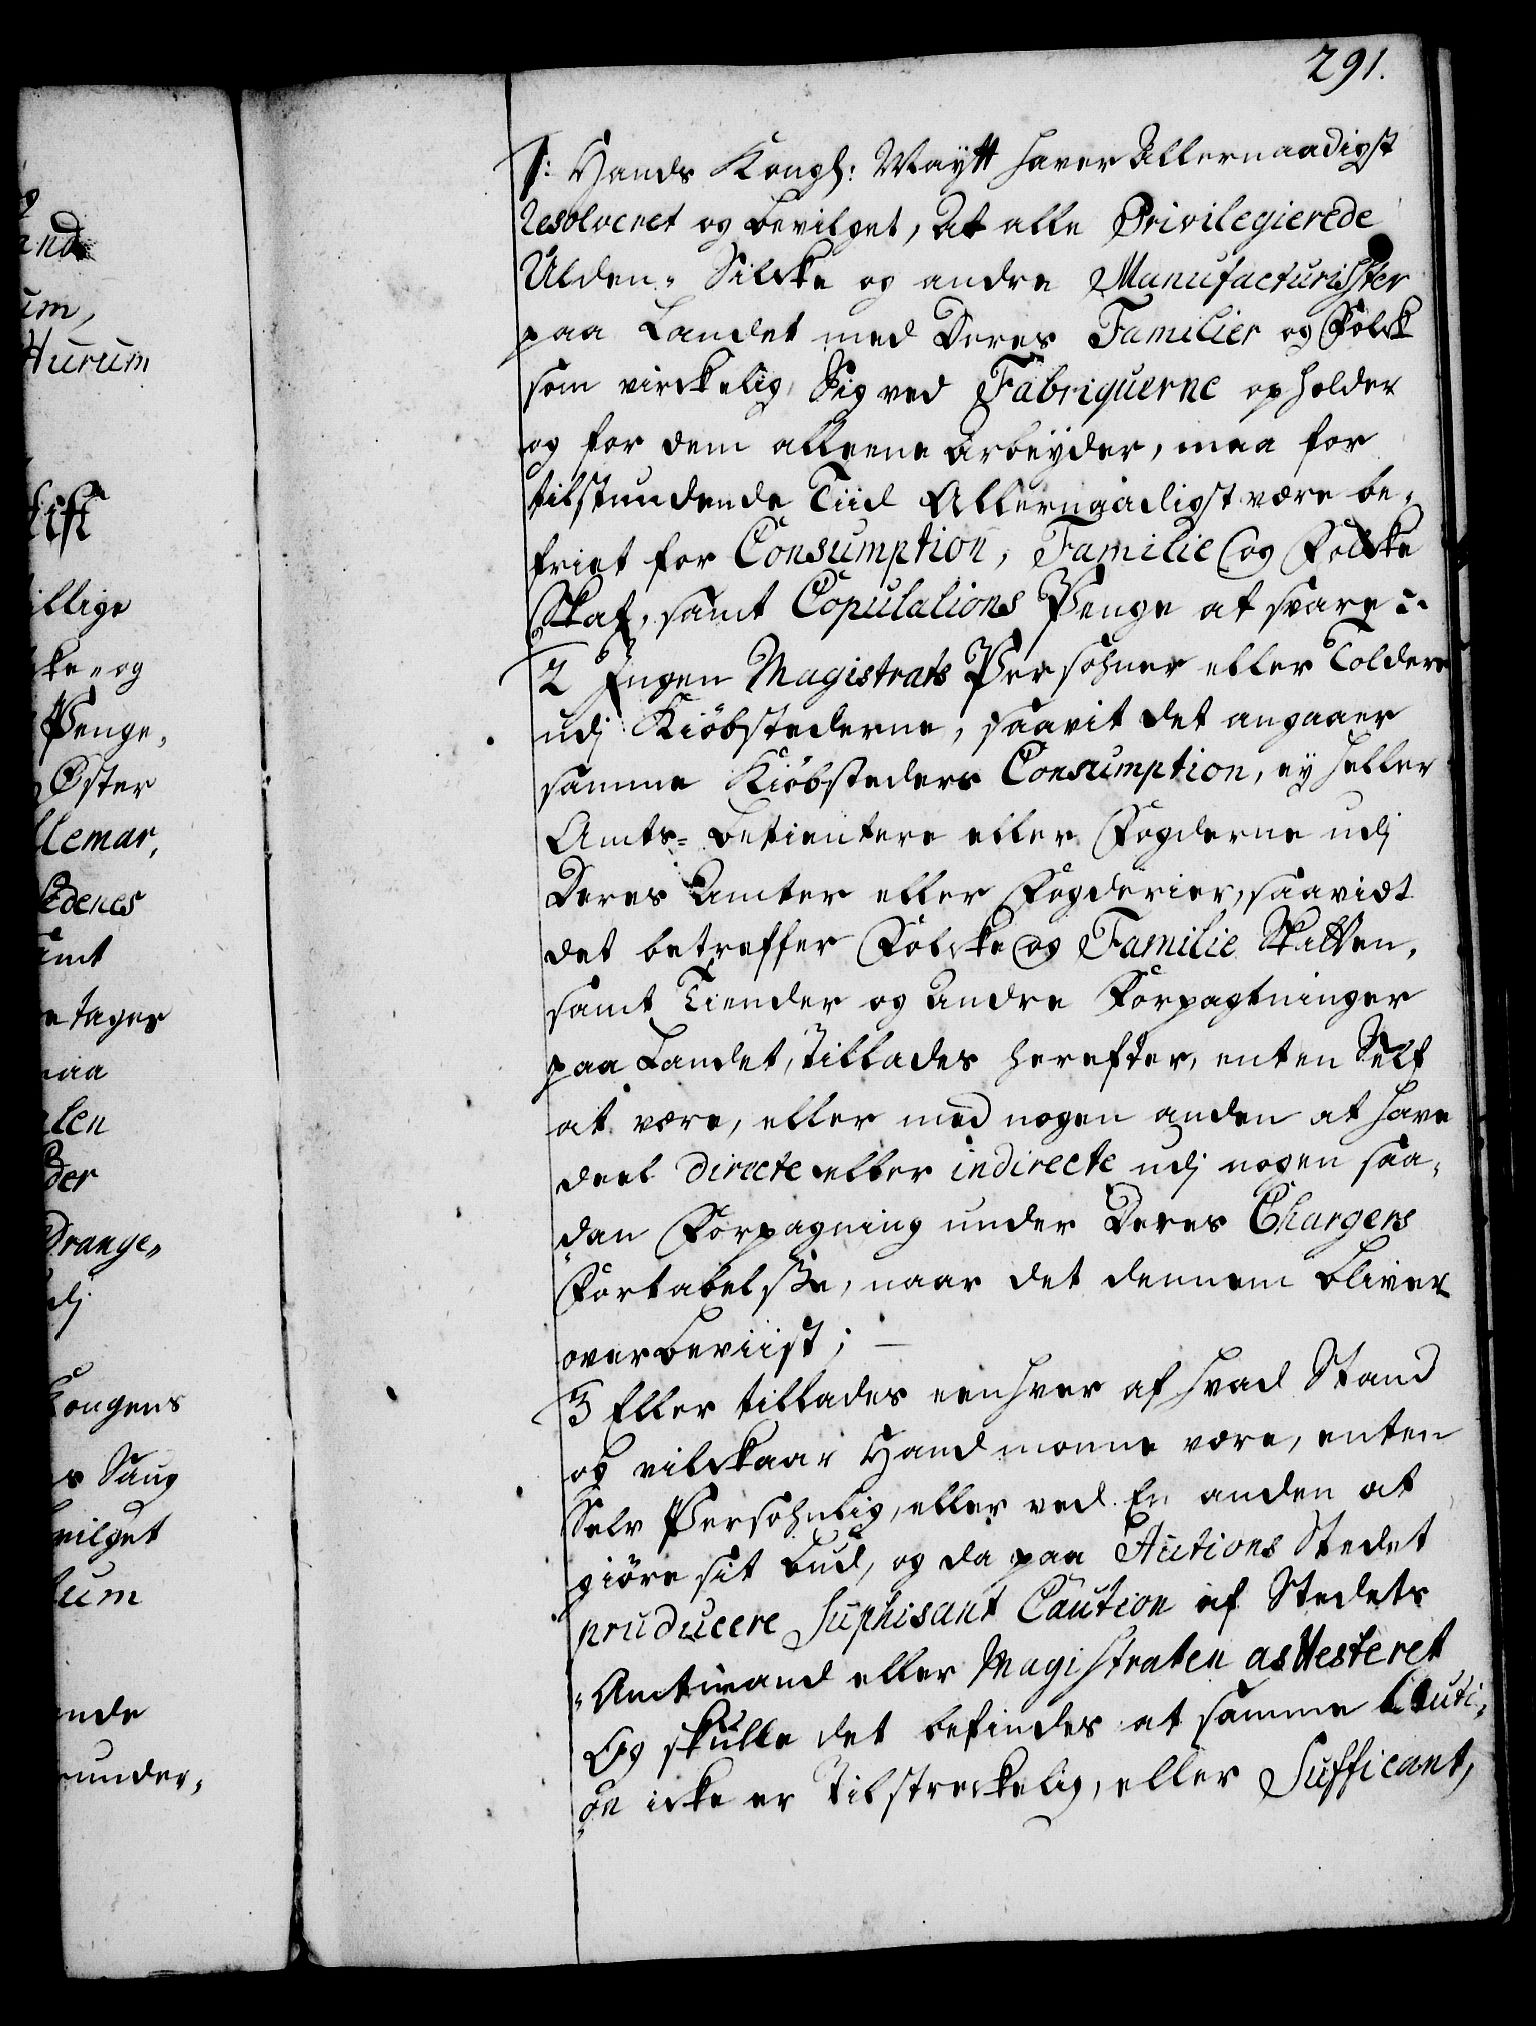 291.
1: Hands Kongl: Maytt haver Allernaadigst
Resolveret og bevilget, At alle Privilegierede
Ulden- Silcke og andre Manufacturister
paa Landet med Deres Familier og Folck
som virckelig Sig ved Fabriquerne opholder
og for dem alleene Arbeyder, maa for
tilstundende Tiid Allernaadigst være be-
friet for Consumption, Familie og Folcke
Skat, samt Copulations Penge at svare :-
2 Ingen Magistrats Persohner eller Toldere
udj Kiöbstederne, saavit det angaaer
samme Kiöbsteders Consumption, ey heller
Amts- betientere eller Fogderne udj
Deres Amter eller Fogderier, saavidt
det betreffer Folcke og Familie Skatten,
samt Tiender og andre Forpagtninger
paa Landet, Tillades herefter, enten Self
at være, eller med nogen anden at have
deel directe eller indirecte udj nogen saa-
dan Forpagning under Deres Chargers
Fortabelsse, naar det dennem bliver
overbeviist; —
3 Eller tillades eenhver af hvad Stand
og vilckaar Hand monne være, enten
Selv Persohnlig, eller ved En anden at
giöre sit bud, og da paa Autions Stedet
pruducere Suphisant Caution af Stedets
Amtmand eller Magistraten asttesteret
Og skulle det befindes at samme Cauti-
on icke er Tilstreckelig, eller Sufficant,
and
um,
Hurum
illige
cke- og
Penge,
Öster
llemar,
edenes
amt
e tages
maa
alen
der
Drange-
udj
Kongens
Saug
evilget
tum
ende
runder-